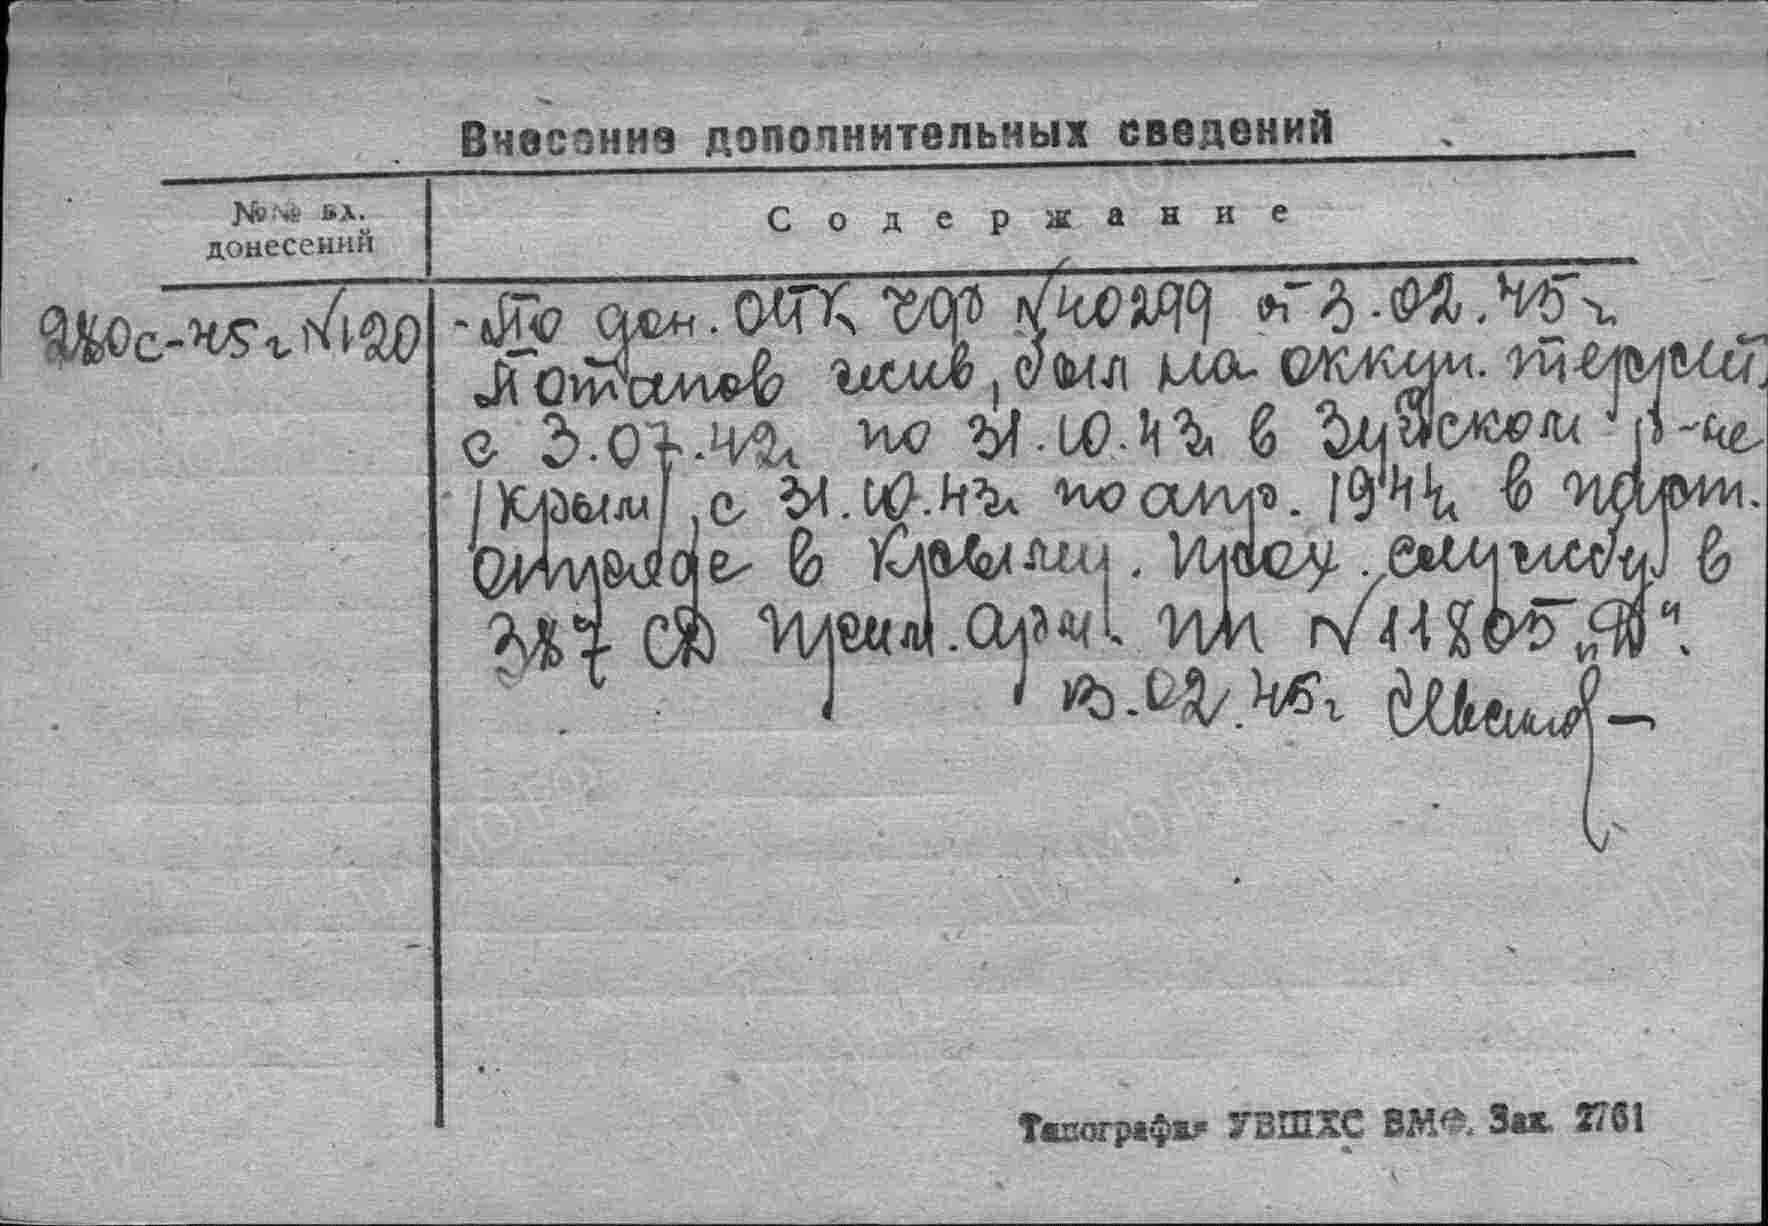 Внесение дополнительных сведений
№№ вх.
донесений
Содержание
280с-45г №120
- По дон. ОПК ЧФ №40299 от 3.02.45г
Потапов жив, был на оккуп. террит.
с 3.07.42г по 31.10.43г в Зуйском р-не
/Крым/, с 31.10.43г по апр. 1944г в парт.
отряде в Крыму. Прох. службу в
387 СД Прим. арм. ПП №11805 „Д".
13.02.45г
Типография УВШХС ВМФ. Зак. 2761